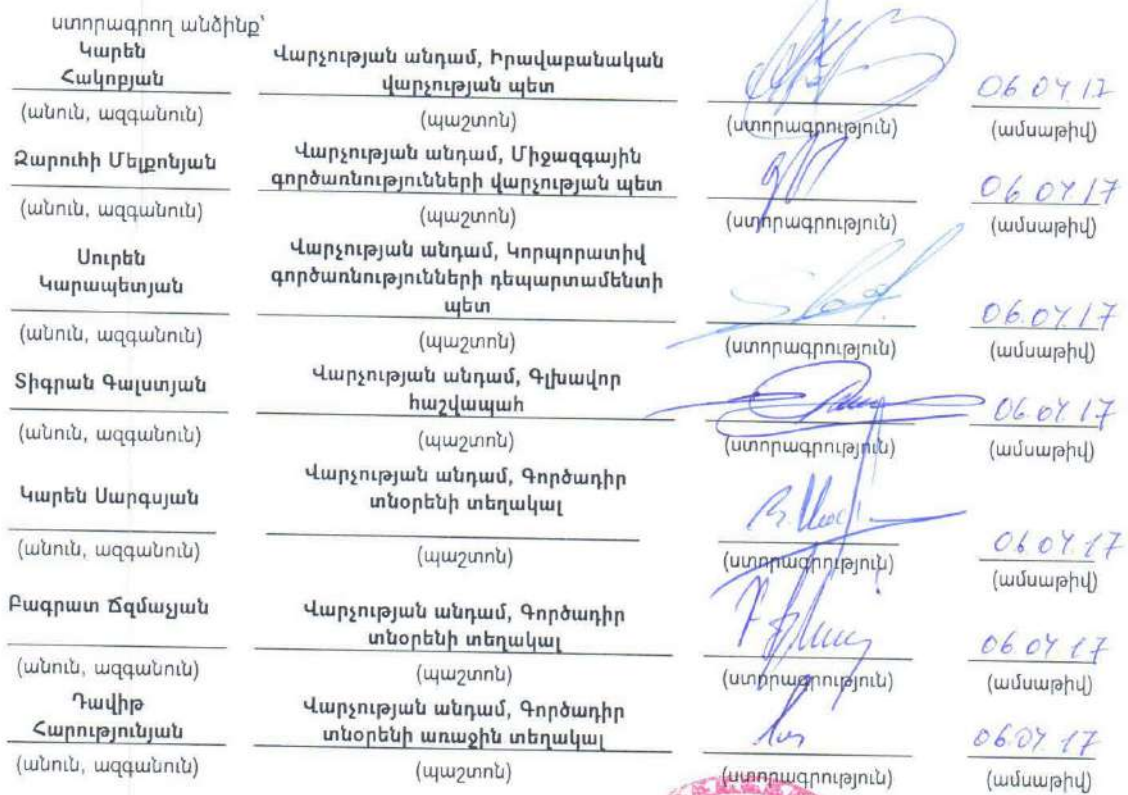 ստորագրող անձինք՝
Կարեն
Հակոբյան
Վարչության անդամ, Իրավաբանական
վարչության պետ
06.04.17
(անուն, ազգանուն)
(պաշտոն)
(ստորագրություն)
(ամսաթիվ)
Զարուհի Մելքոնյան
Վարչության անդամ, Միջազգային
գործառնությունների վարչության պետ
06.04.17
(անուն, ազգանուն)
(պաշտոն)
(ստորագրություն)
(ամսաթիվ)
Սուրեն
Կարապետյան
Վարչության անդամ, Կորպորատիվ
գործառնությունների դեպարտամենտի
պետ
06.04.17
(անուն, ազգանուն)
(պաշտոն)
(ստորագրություն)
(ամսաթիվ)
Տիգրան Գալստյան
Վարչության անդամ, Գլխավոր
հաշվապահ
06.04.17
(անուն, ազգանուն)
(պաշտոն)
(ստորագրություն)
(ամսաթիվ)
Կարեն Սարգսյան
Վարչության անդամ, Գործադիր
տնօրենի տեղակալ
06.04.17
(անուն, ազգանուն)
(պաշտոն)
(ստորագրություն)
(ամսաթիվ)
Բագրատ Ճզմաչյան
Վարչության անդամ, Գործադիր
տնօրենի տեղակալ
06.04.17
(անուն, ազգանուն)
(պաշտոն)
(ստորագրություն)
(ամսաթիվ)
Դավիթ
Հարությունյան
Վարչության անդամ, Գործադիր
տնօրենի առաջին տեղակալ
06.04.17
(անուն, ազգանուն)
(պաշտոն)
(ստորագրություն)
(ամսաթիվ)